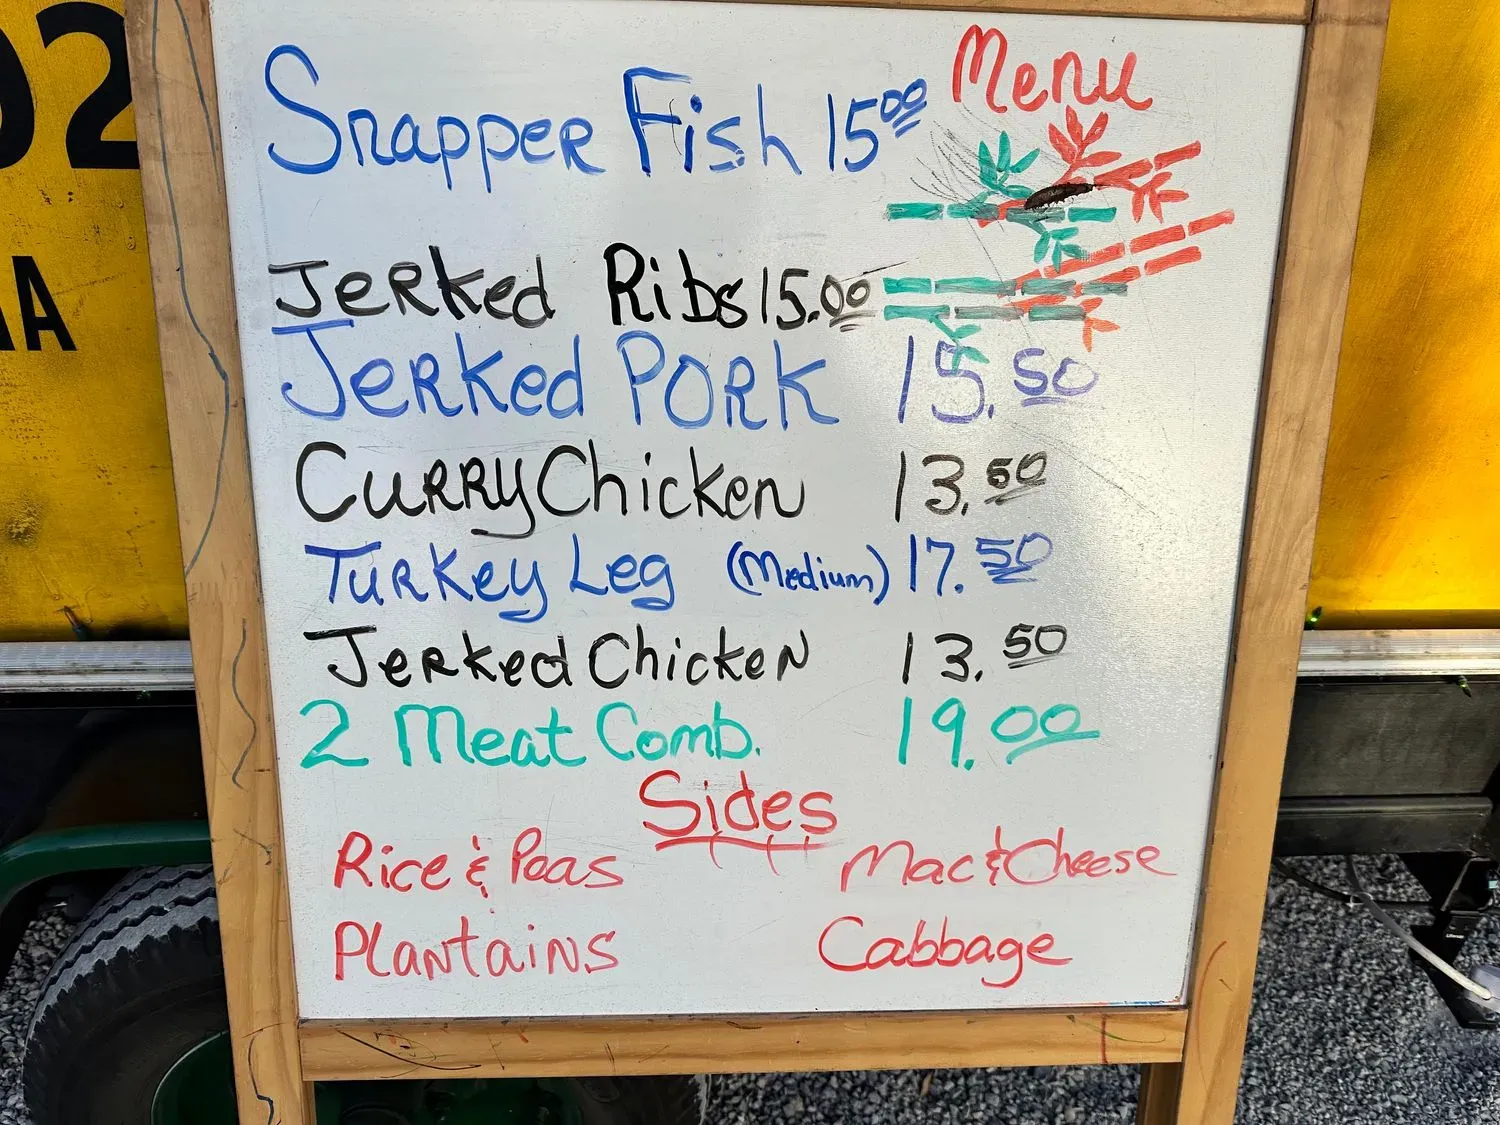 Menu
Snapper Fish 15.00
Jerked Ribs 15.00
Jerked Pork 15.50
Curry Chicken 13.50
Turkey Leg (Medium) 17.50
Jerked Chicken 13.50
2 Meat Comb. 19.00
Sides
Rice & Peas Mac & Cheese
Plantains Cabbage